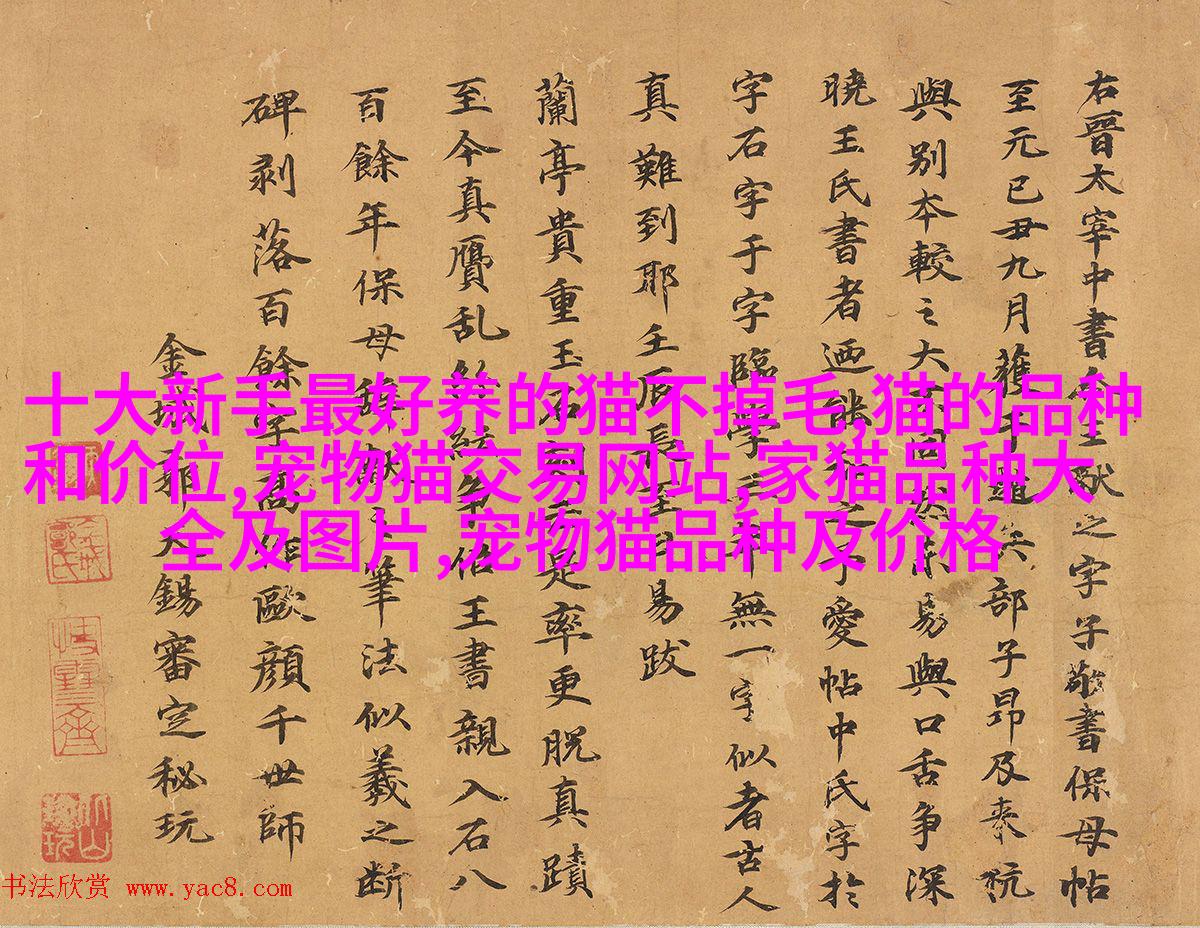 右晉太宰中書令王獻之字子敬書保母帖
至元己丑九月獲于趙兵部子昂及來杭
與别本較之大不同然則易與口舌争深
曉王氏書者迺能知之予愛帖中氏字於
字石字于字臨學之年無一字似者古人
真難到耶壬辰長至日易跋
蘭亭貴重玉石是率更脱真蹟
至今真贋乱結俗王書親入石八
百餘年保母獻之筆法似羲之断
碑剥落百餘字萬歐顔千世師
金城郭天錫審定秘玩
十大新手最好养的猫不掉毛,猫的品种
和价位,宠物猫交易网站,家猫品种大
全及图片,宠物猫品种及价格
书法欣赏 www.yac8.com